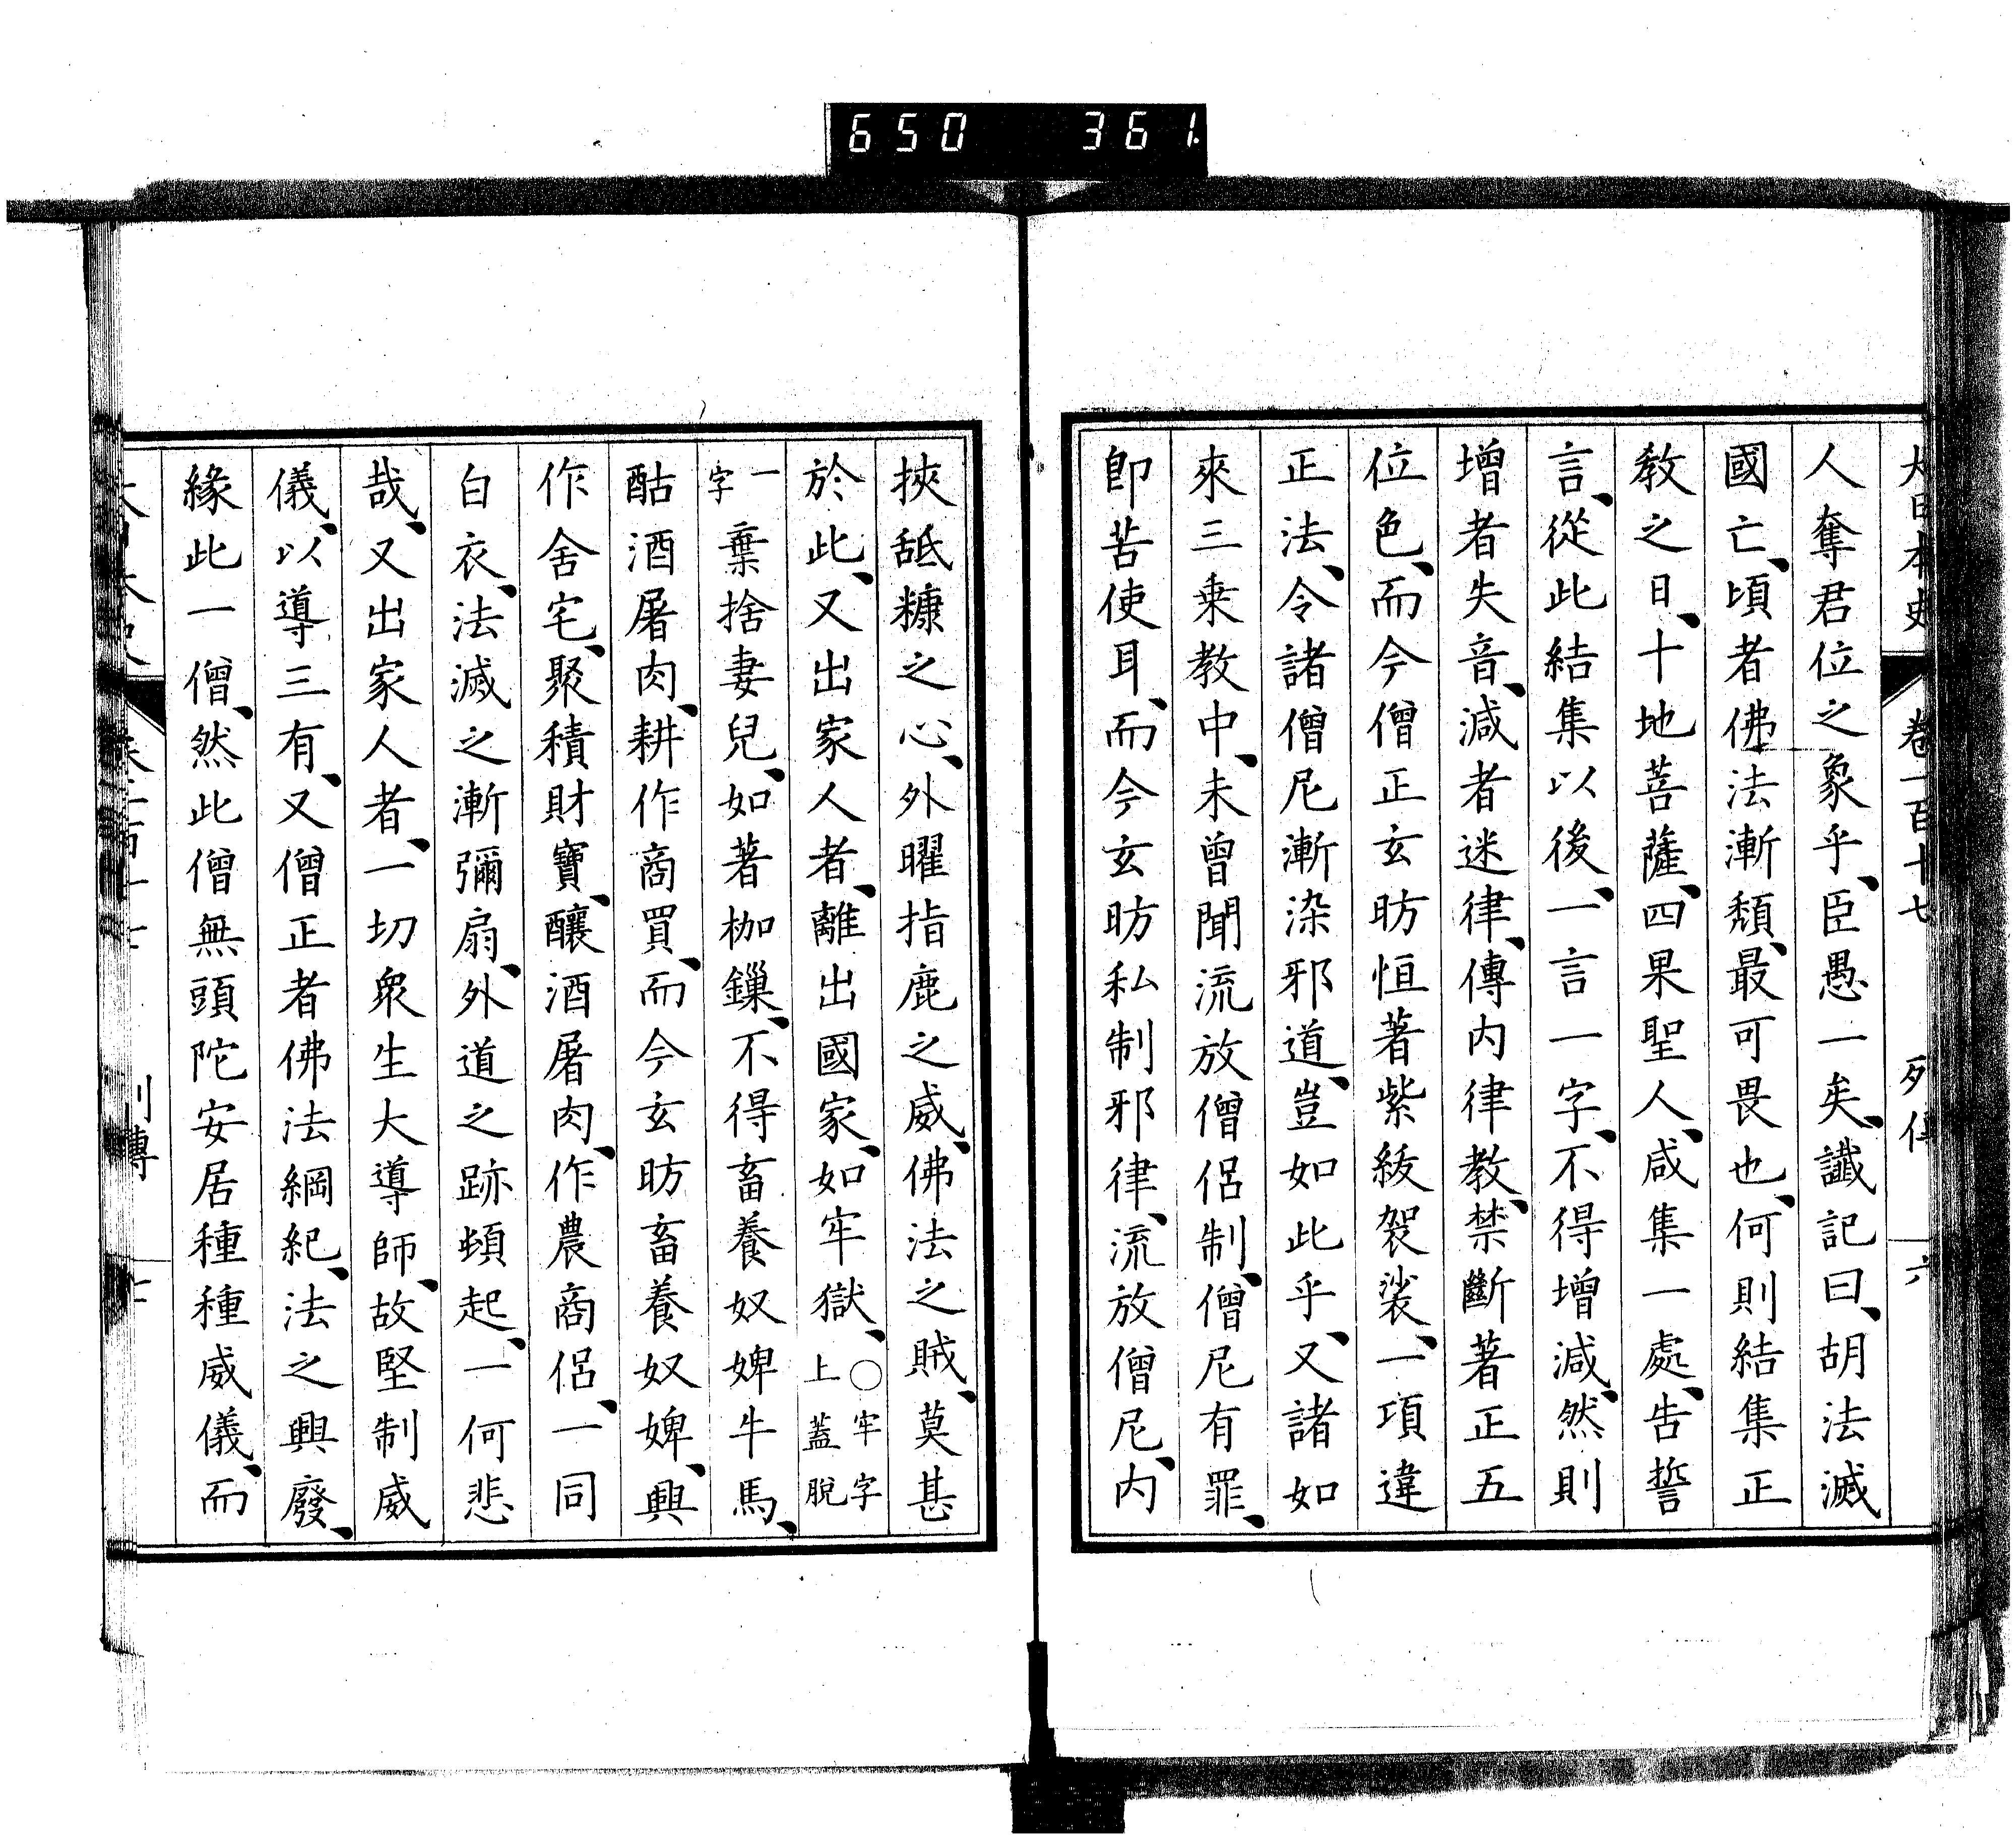 650 361
大日本史 卷一百十七 列傳 六
人奪君位之象乎、臣愚一矣、讖記曰、胡法滅
國亡、頃者佛法漸頹、最可畏也、何則結集正
教之日、十地菩薩、四果聖人、咸集一處、告誓
言、從此結集以後、一言一字、不得增減、然則
增者失音、減者迷律、傳内律教、禁斷著正五
位色、而今僧正玄昉恒著紫紱袈裟、一項違
正法、令諸僧尼漸染邪道、豈如此乎、又諸如
來三乗教中、未曾聞流放僧侶制、僧尼有罪、
卽苦使耳、而今玄昉私制邪律、流放僧尼、内
挾舐糠之心、外曜指鹿之威、佛法之賊、莫甚
於此、又出家人者、離出國家、如牢獄、○牢字上蓋脫
一字棄捨妻兒、如著枷鏁、不得畜養奴婢牛馬、
酤酒屠肉、耕作商買、而今玄昉畜養奴婢、興
作舍宅、聚積財寶、釀酒屠肉、作農商侶、一同
白衣、法滅之漸彌扇、外道之跡頓起、一何悲
哉、又出家人者、一切衆生大導師、故堅制威
儀、以導三有、又僧正者佛法綱紀、法之興廢、
緣此一僧、然此僧無頭陀安居種種威儀、而